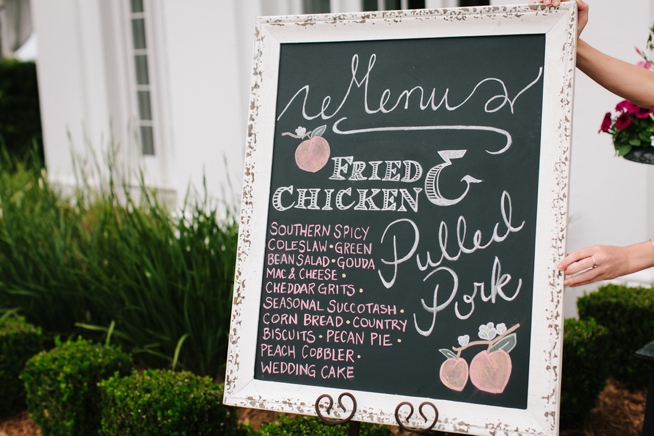 Menu
FRIED &
CHICKEN
Pulled
Pork
SOUTHERN SPICY
COLESLAW • GREEN
BEAN SALAD • GOUDA
MAC & CHEESE •
CHEDDAR GRITS •
SEASONAL SUCCOTASH •
CORN BREAD • COUNTRY
BISCUITS • PECAN PIE •
PEACH COBBLER •
WEDDING CAKE